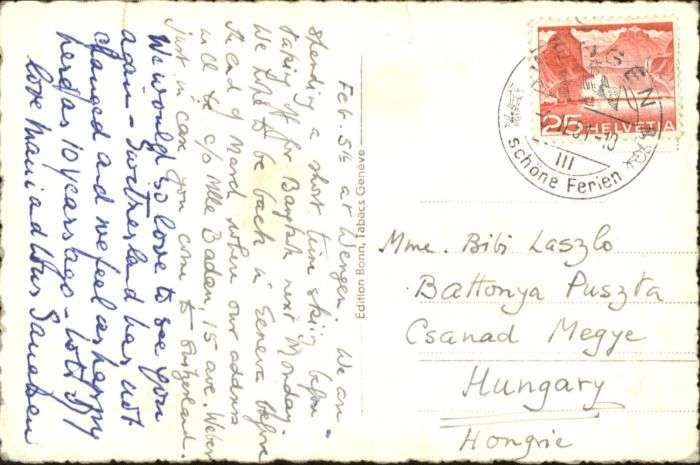 Feb. 5th at Wengen. We are
spending a short time skiing before
taking off for Bagdad next Monday.
We hope to be back in Geneva before
the end of March where our address
will be c/o Mlle Baden, 15 ave. Weber
Just in case you come to Switzerland.
We would so love to see you
again - Switzerland has not
changed and we feel as happy
here as 10 years ago - Lots of
love
Edition Bonn, Tabacs Genève
WENGEN
III
schöne Ferien
25 HELVETIA
Mme. Bibi Laszlo
Battonya Puszta
Csanad Megye
Hungary
Hongrie